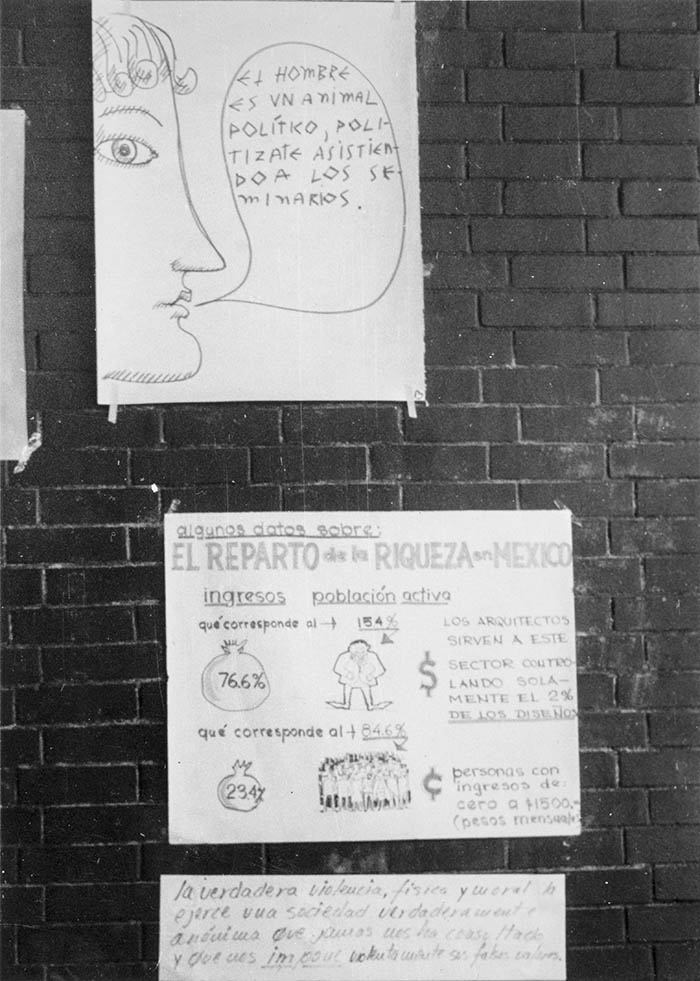 EL HOMBRE
ES UN ANIMAL
POLÍTKO, POLI-
TIZATE ASISTIEN-
DO A LOS SE-
MINARIOS.
algunos datos sobre:
EL REPARTO de la RIQUEZA en MEXICO
ingresos población activa
qué corresponde al → 15.4%
76.6%
$
LOS ARQUITECTOS
SIRVEN A ESTE
SECTOR CONTRO-
LANDO SOLA-
MENTE EL 2%
DE LOS DISEÑOS
qué corresponde al → 84.6%
23.4%
¢
personas con
ingresos de:
cero a $1500.-
(pesos mensuales
la verdadera violencia, física y moral la
ejerce una sociedad verdaderamente
anónima que jamas nos ha consultado
y que nos impone violentamente sus falsos valores.